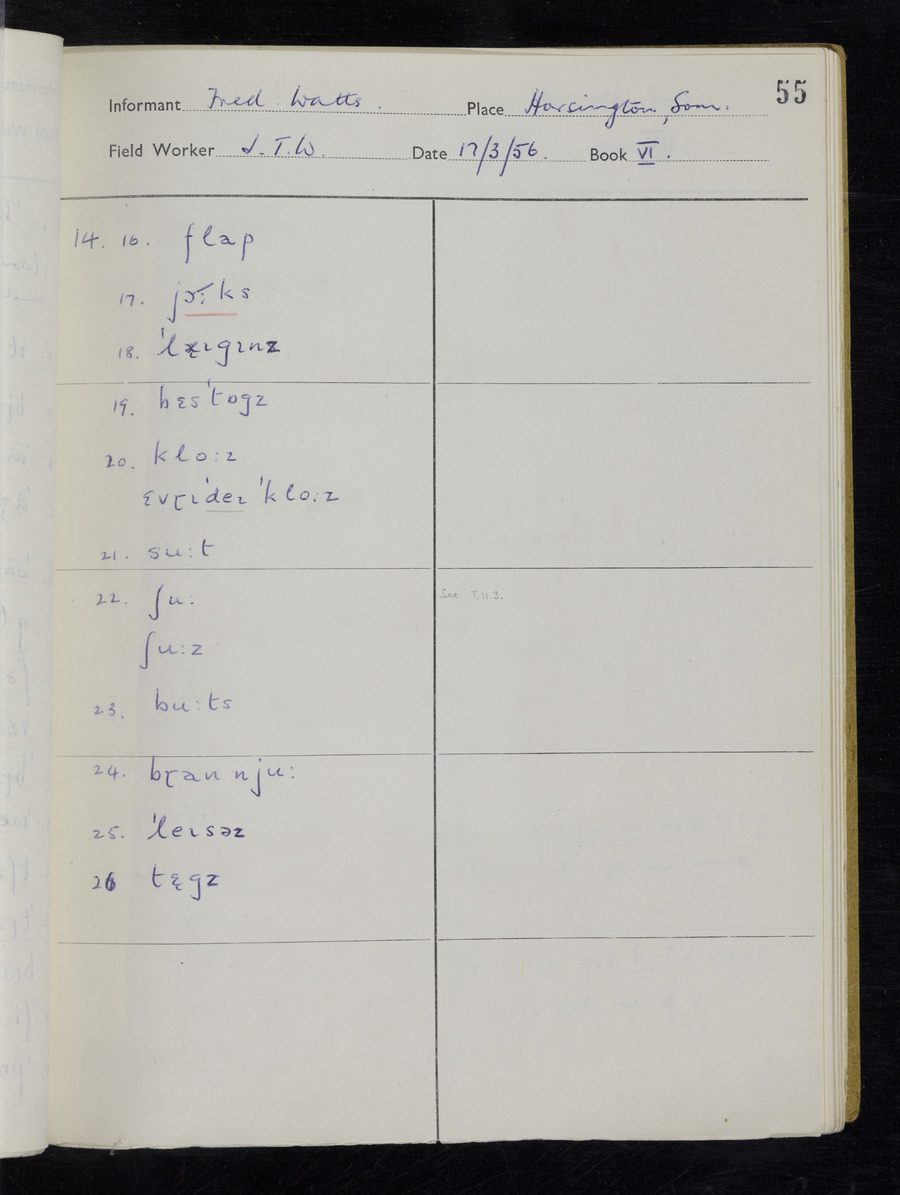 55
Informant Fred Watts. Place Horsington, Som.
Field Worker J.T.W. Date 17/3/56. Book VI.
14. 16. flap
17. jɔ̝:ks
18. ˈlɛɪgɪnz
19. bɛsˈtɒgz
20. klo:z
ɛvɽɪˈdeɪ ˈklo:z
21. su:t
22. ʃu:
See T.11.3.
ʃu:z
23. bu:ts
24. bɽan nju:
25. ˈleɪsəz
26 tɛ̨gz